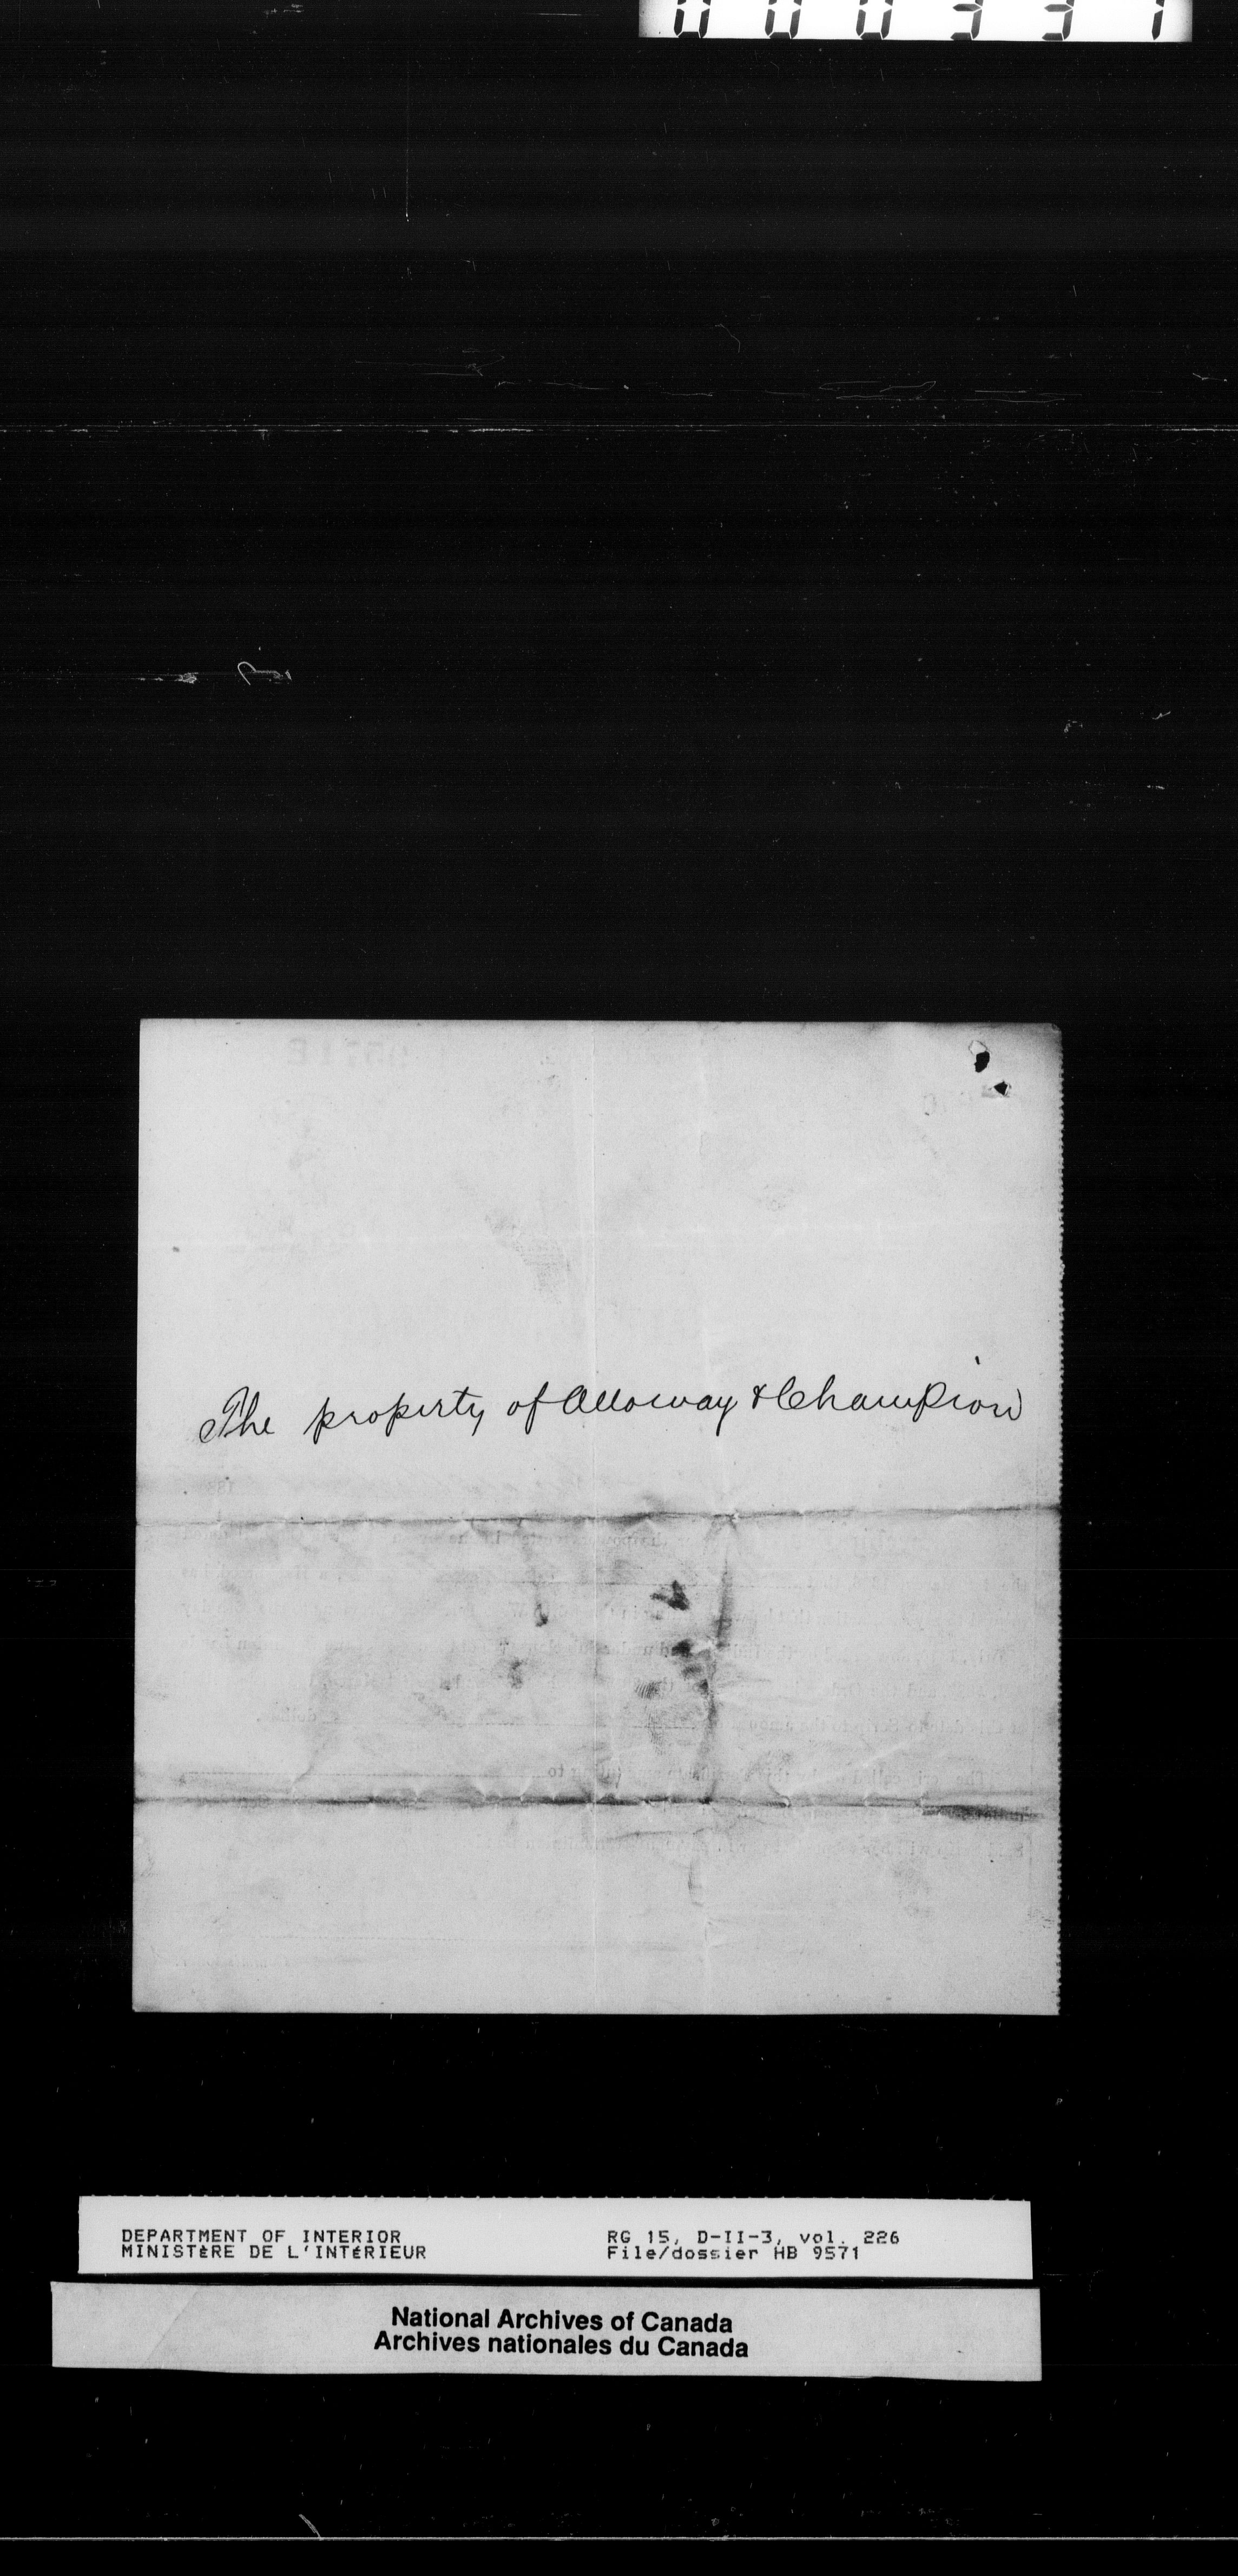 000331
The property of Alloway & Champion
DEPARTMENT OF INTERIOR
MINISTÈRE DE L'INTÉRIEUR
RG 15, D-II-3, vol. 226
File/dossier HB 9571
National Archives of Canada
Archives nationales du Canada